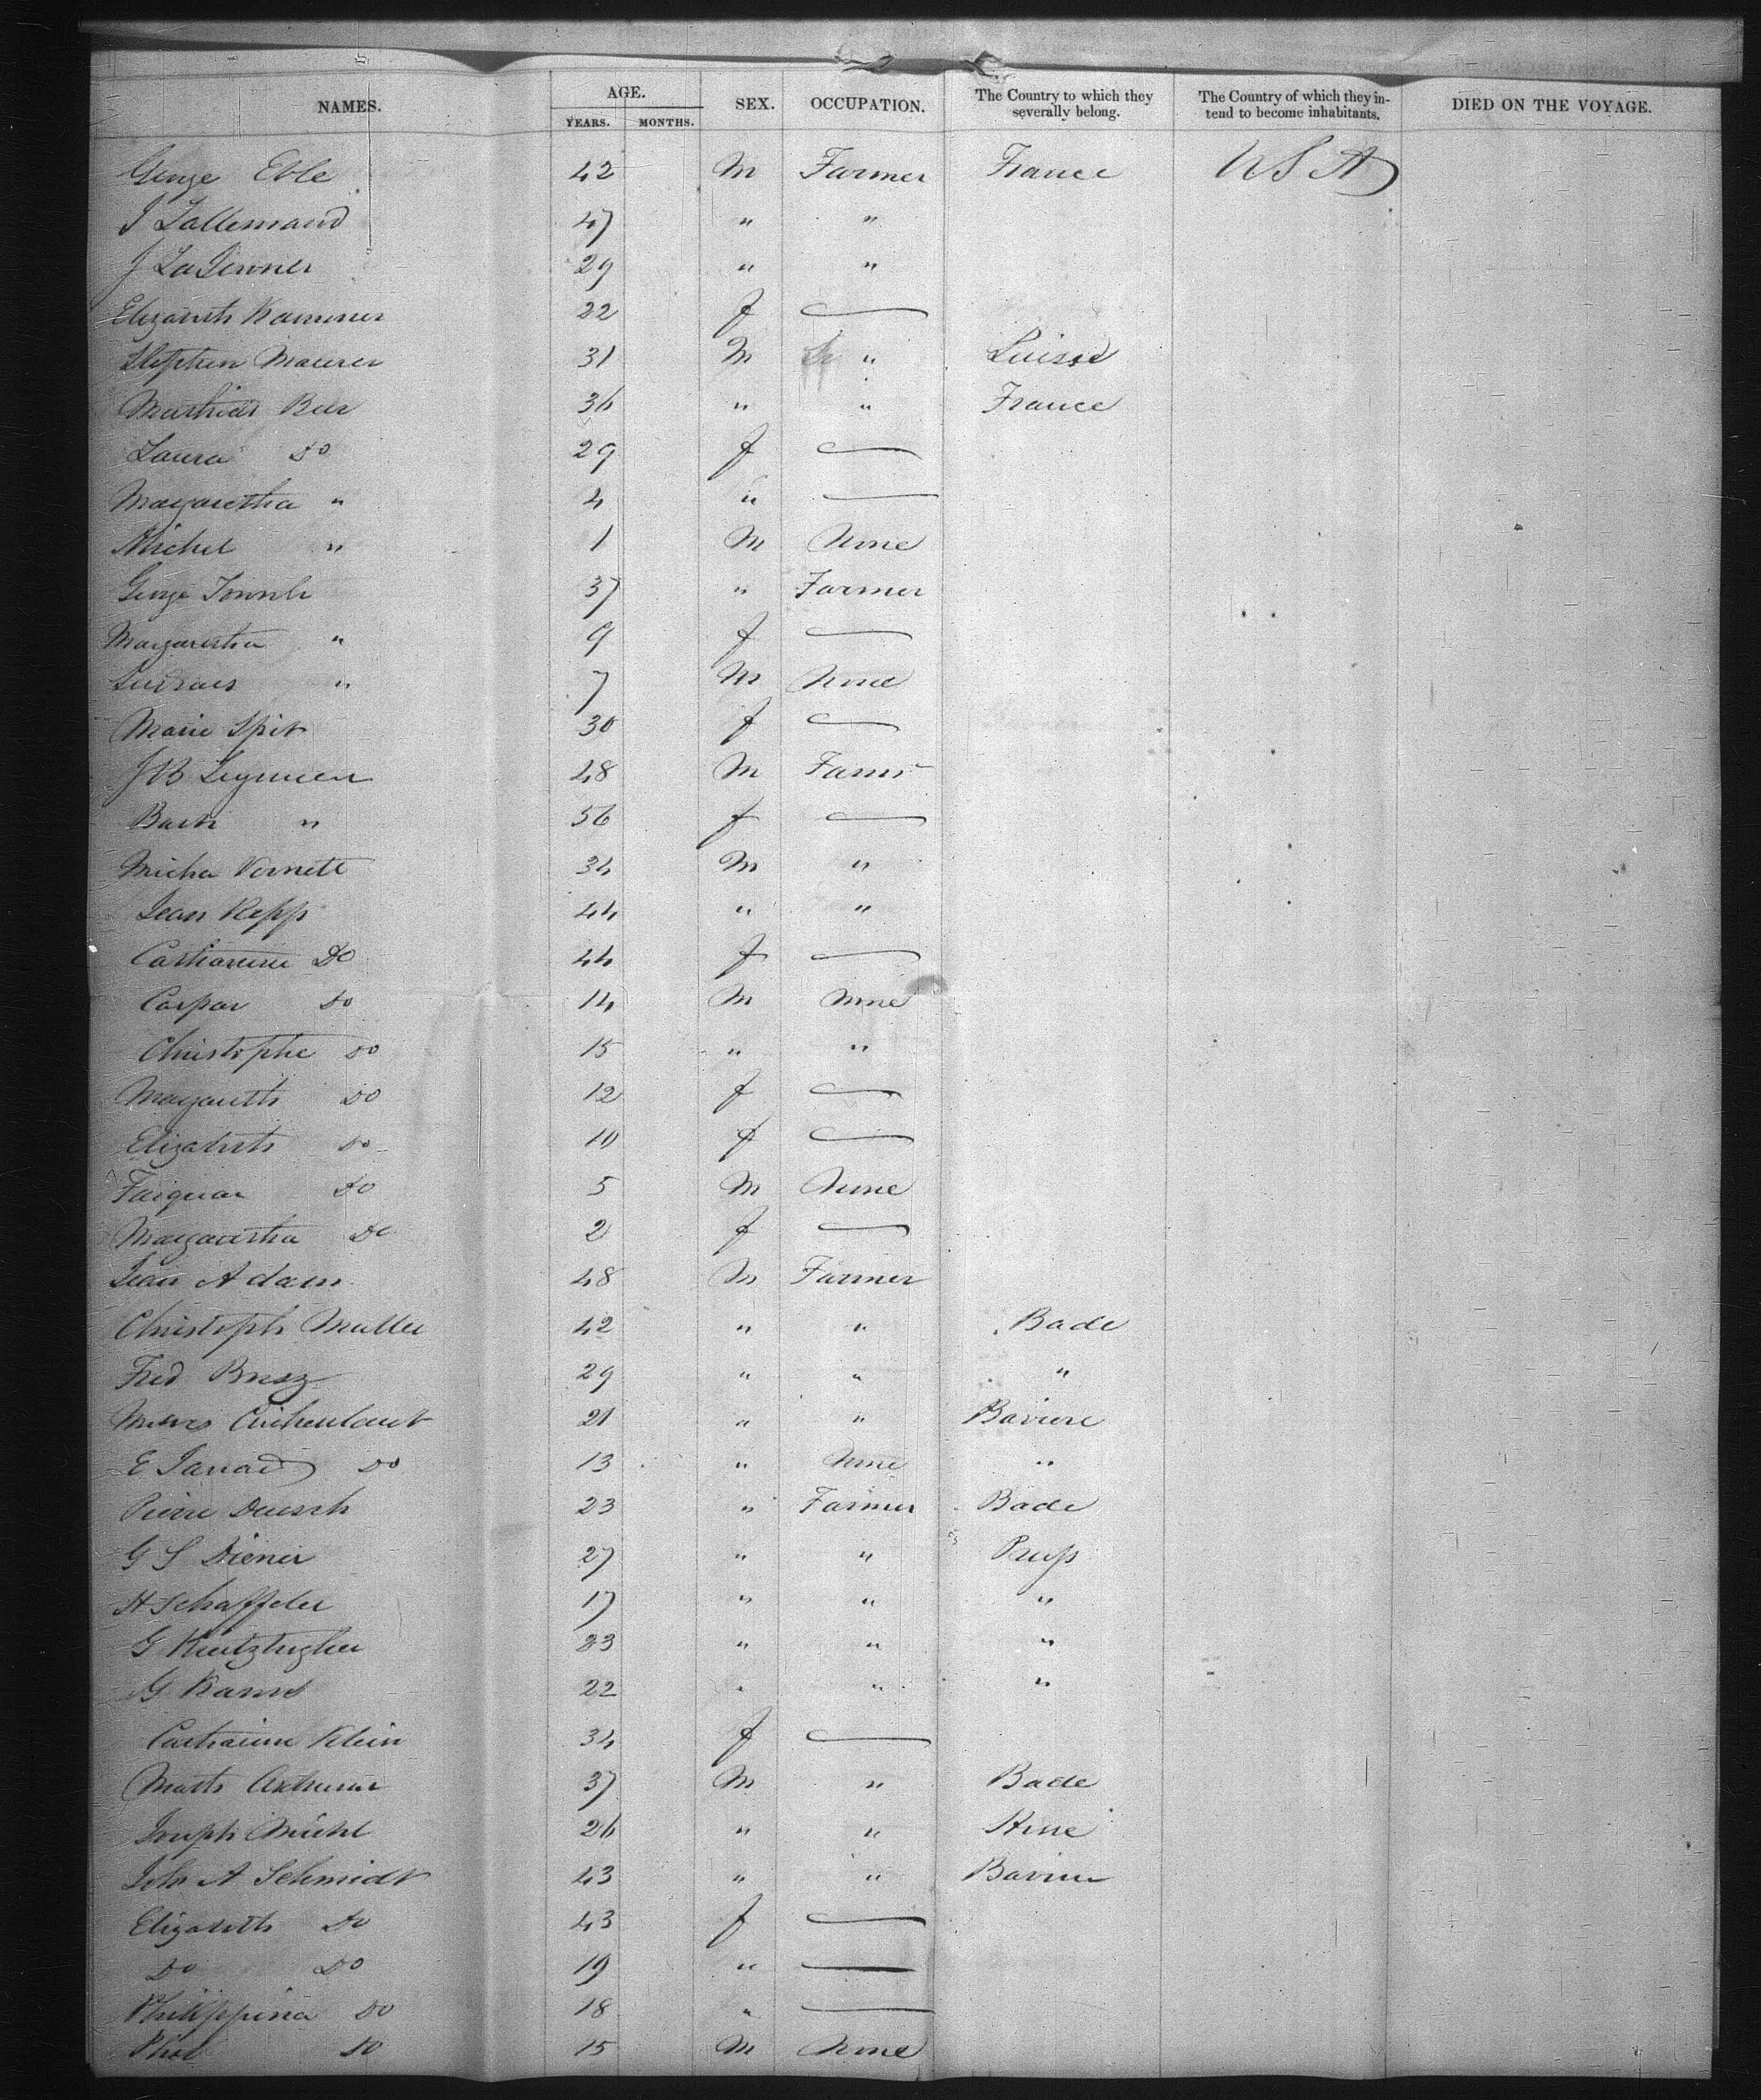 NAMES. AGE. SEX. OCCUPATION. The Country to which they severally belong. The Country of which they intend to become inhabitants. DIED ON THE VOYAGE.
YEARS. MONTHS.
George Eble 42 M Farmer France U S A
J Lallemand 47 " "
J 29 " "
Elizabeth Kammer 22 f —
Stephen Maurer 31 M " Suisse
Mathias Beer 36 " " France
Laura Do 29 f —
Margaretha " 4 " —
Michel " 1 M None
George 37 " Farmer
Margaretha " 9 f —
" 7 M None
Marie Spit 30 f —
J B 48 M Farmr
Barb " 56 f —
Micha Vernette 34 M "
Jean Kepp 44 " "
Catharine Do 44 f —
Caspar Do 14 M None
Christophe Do 15 " "
Margareth Do 12 f —
Elizabeth Do 10 f —
Do 5 M None
Margaretha Do 2 f —
Jean Adam 48 M Farmer
Christoph Muller 42 " " Bade
Fred 29 " " "
21 " " Baviere
E Do 13 " None "
Pierre Duesch 23 " Farmer Bade
G S Diener 27 " " Prus
H Schaffder 17 " " "
G 23 " " "
G 22 " " "
Catharine Klein 34 f —
Math 37 M " Bade
Joseph Michl 26 " " Hesse
Joh A Schmidt 43 " " Baviere
Elizabeth Do 43 f —
Do Do 19 " —
Philippina Do 18 " —
Do 15 M None